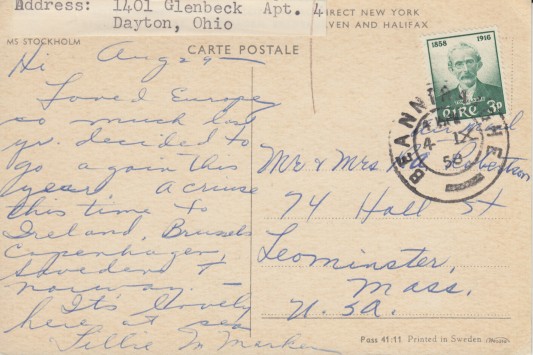 Address: 1401 Glenbeck Apt. 4
Dayton, Ohio
DIRECT NEW YORK
VEN AND HALIFAX
MS STOCKHOLM
CARTE POSTALE
1858 1916
éIRe 3p
4-IX
58
Hi Aug 29 —
Loved Europe
so much last
yr. decided to
go again this
year A cruise
this time to
Ireland, Brussels
Copenhagen,
Sweden &
Norway. —
It's lovely
here at sea
Lillie M
Mr & Mrs Robertson
74 Hall St
Leominster,
Mass.
U.S.A.
Pass 41:11 Printed in Sweden